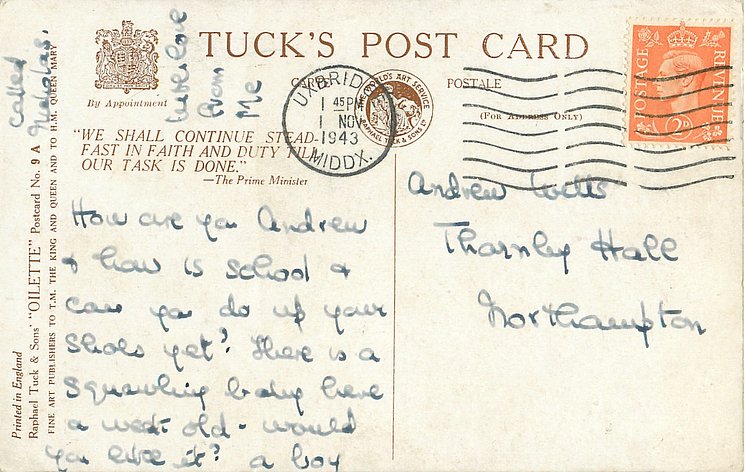 TUCK'S POST CARD
By Appointment
CARTE POSTALE
(FOR ADDRESS ONLY)
WORLD'S ART SERVICE
RAPHAEL TUCK & SONS LD
UXBRIDGE
1 45 PM
1 NOV
1943
MIDDX.
POSTAGE
REVENUE
2D
"WE SHALL CONTINUE STEAD-
FAST IN FAITH AND DUTY TILL
OUR TASK IS DONE."
—The Prime Minister
How are you Andrew
& how is school &
can you do up your
shoes yet? There is a
squawling baby here
a week old - would
you like it? a boy
called
Nicholas.
with love
from
Me
Andrew Wells
Thornby Hall
Northampton
Printed in England
Raphael Tuck & Sons' "OILETTE" Postcard No. 9 A
FINE ART PUBLISHERS TO T.M. THE KING AND QUEEN AND TO H.M. QUEEN MARY